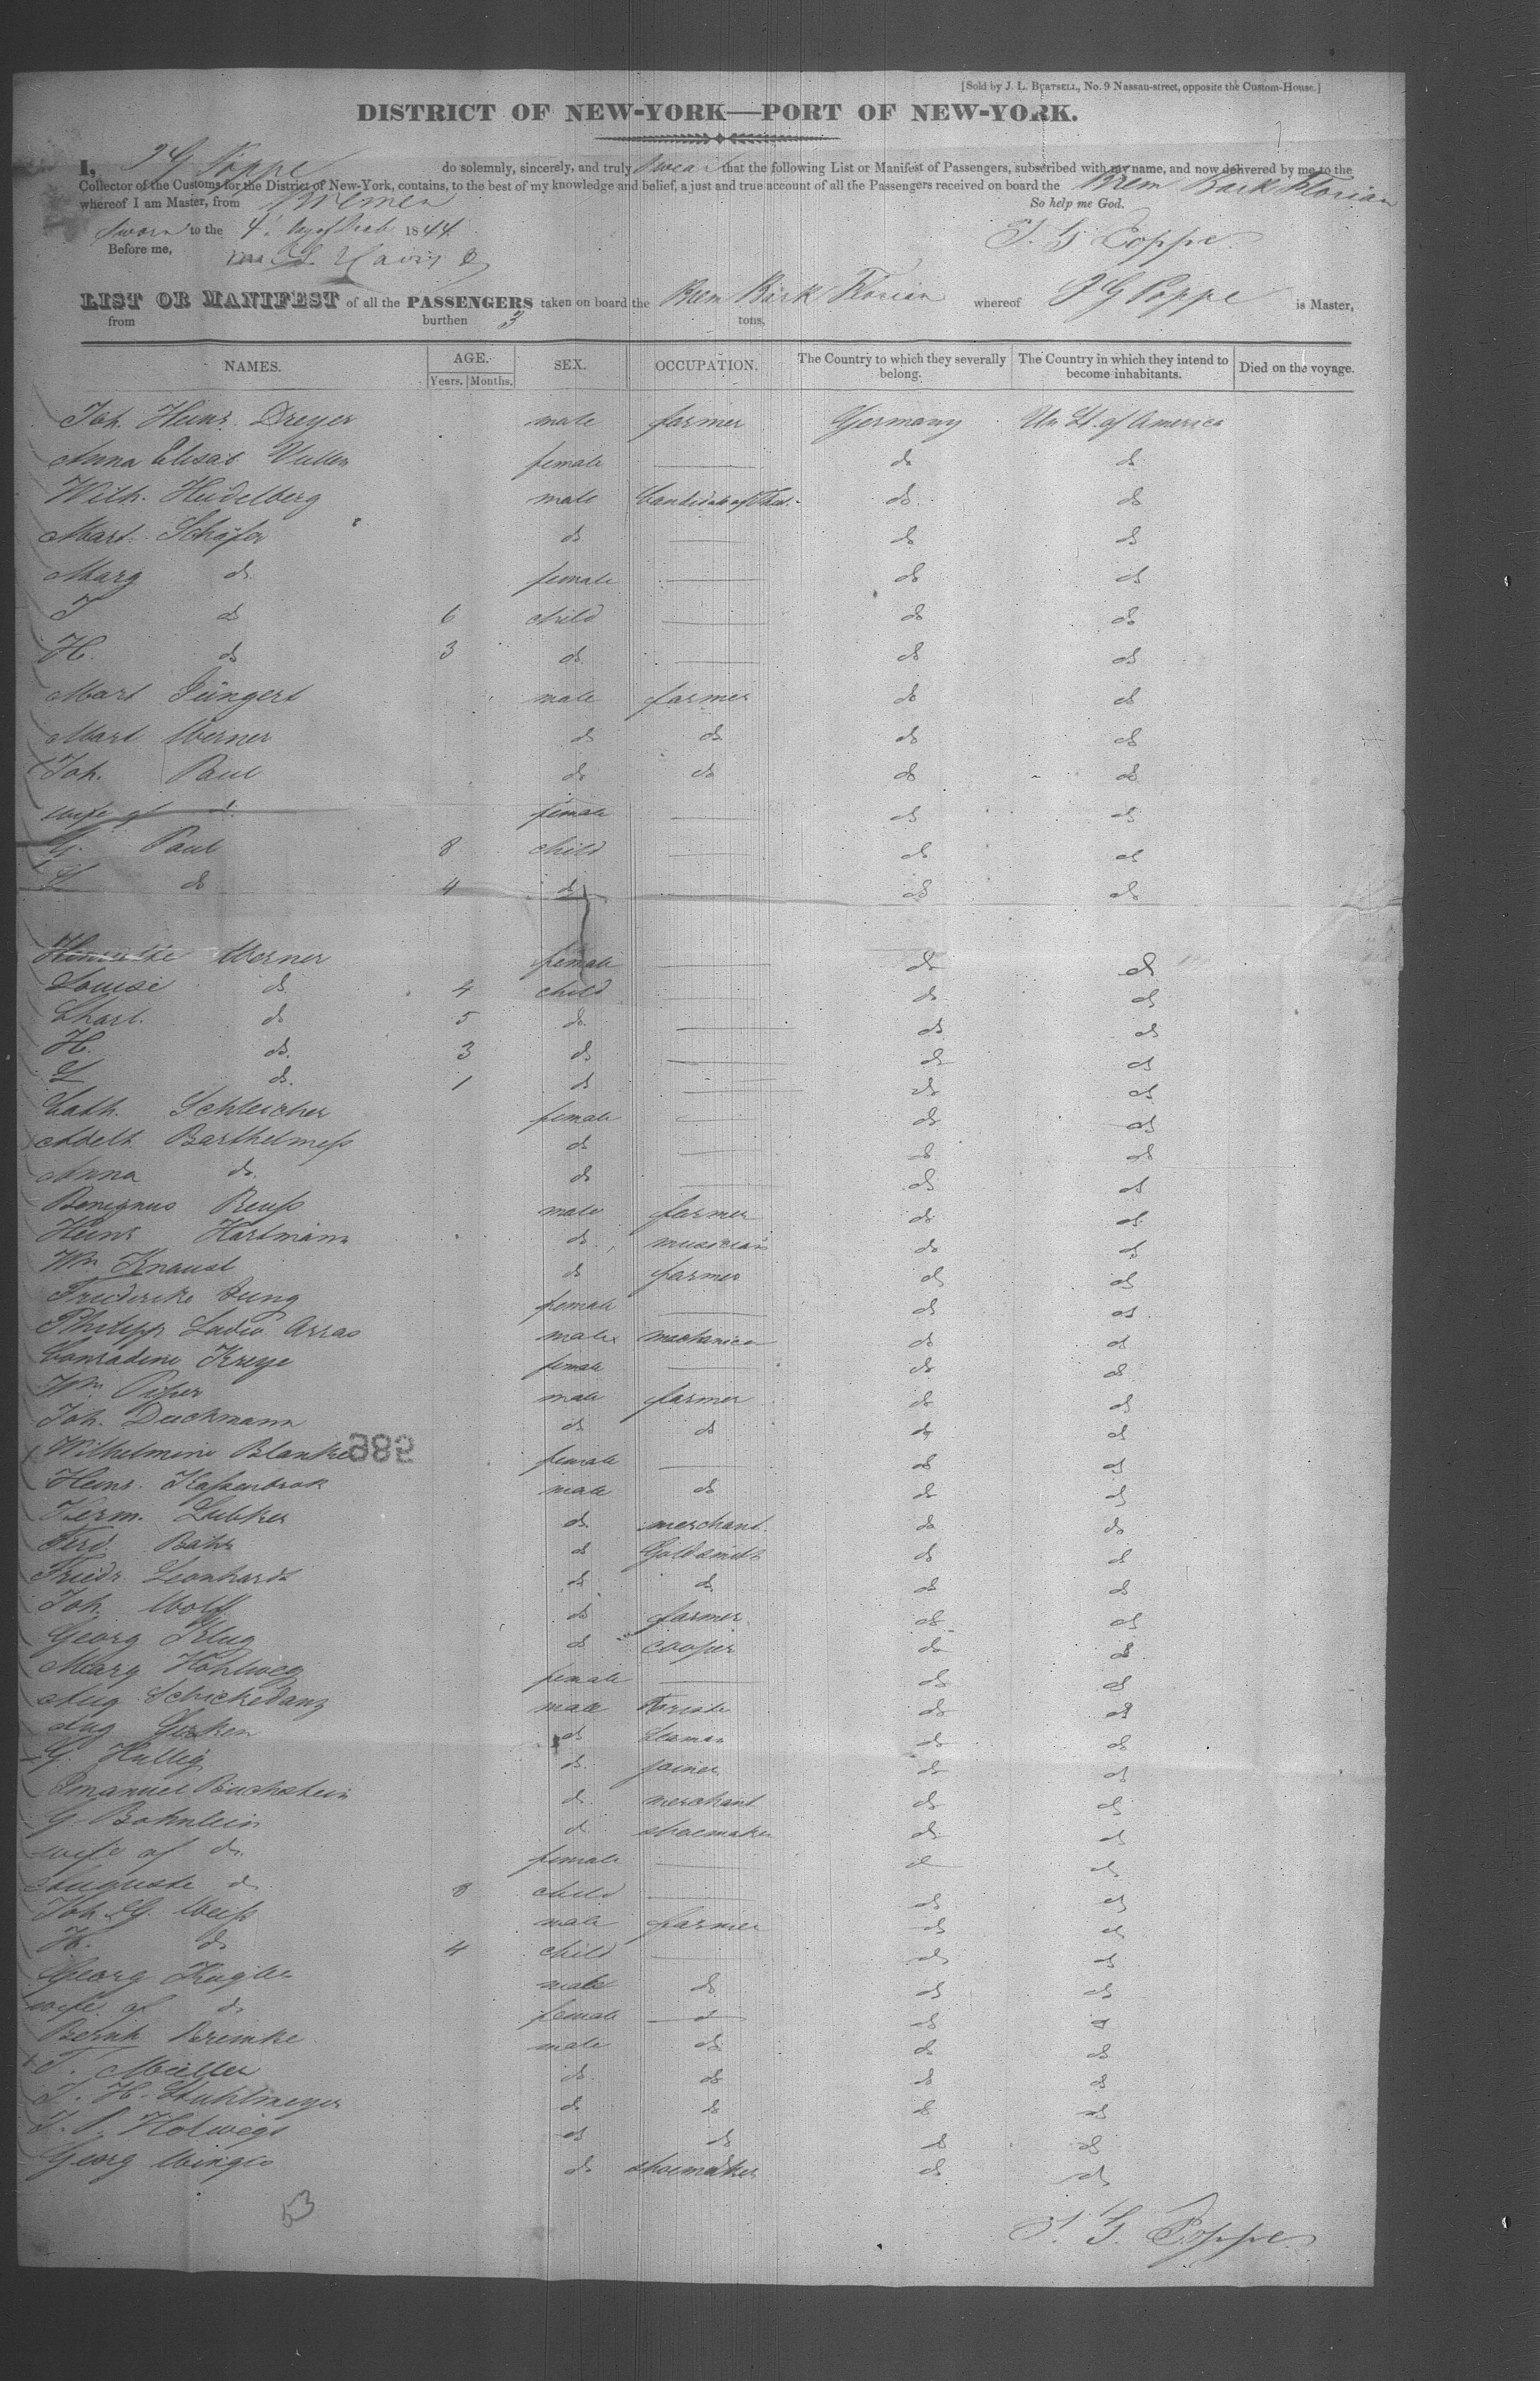 [Sold by J. L. BURTSELL, No. 9 Nassau-street, opposite the Custom-House.]
DISTRICT OF NEW-YORK—PORT OF NEW-YORK.
I, J G Poppe do solemnly, sincerely, and truly swear that the following List or Manifest of Passengers, subscribed with my name, and now delivered by me to the
Collector of the Customs for the District of New-York, contains, to the best of my knowledge and belief, a just and true account of all the Passengers received on board the Brem Bark Florian
whereof I am Master, from Bremen So help me God.
Sworn to the 4 1844 J. G Poppe
Before me,
LIST OR MANIFEST of all the PASSENGERS taken on board the Brem Bark Florian whereof J G Poppe is Master,
from burthen tons,
NAMES. AGE. SEX. OCCUPATION. The Country to which they severally belong. The Country in which they intend to become inhabitants. Died on the voyage.
Years. Months.
Joh. Heinr. Dreyer male farmer Germany Un St. of America
Anna Elisab. female do do
Wilh. Heidelberg male do do
Mart. Schäfer do do do
Marg do female do do
J do 6 child do do
H. do 3 do do do
Mart Jüngert male farmer do do
Mart Werner do do do do
Joh. Paul do do do do
wife of d. female do do
G. Paul 8 child do do
do 4 do do do
Henriette Werner female do do
Louise do 4 child do do
Charl. do 5 do do do
H. do. 3 do do do
L do. 1 do do do
Cath. Schleicher female do do
Adelh Barthelmess do do do
Anna do. do do do
Benignus Reuss male farmer do do
Heinr Hartmann do musician do do
Wm Knaust do farmer do do
Friedericke Jung female do do
Philipp Ludw Arras male mechanica do do
Conradine Kreye female do do
Wm Piper male farmer do do
Joh. Deichmann do do do do
Wilhelmine Blanke female do do
989
Heinr. male do do do
Herm. Lubker do merchant do do
Ferd. Bähr do Goldsmith do do
Friedr. Leonhardt do do do do
Joh. Wolff do farmer do do
Georg Klug do cooper do do
Marg Hohlweg female do do
Aug Schickedanz male do do
Aug Gerken do Seaman do do
G. do joiner do do
Emanuel Buchstein do merchant do do
G Bohnlein do shoemaker do do
wife of do. female do do
Auguste do 8 child do do
Joh. G. Weiss male farmer do do
H. do 4 child do do
Georg Kugler male do do do
wife of do female do do do
Bernh Bremke male do do do
J. Müller do do do do
J. H. Stuhlmeyer do do do do
J. Holwegs do do do do
Georg do shoemaker do do
53
J. G. Poppe